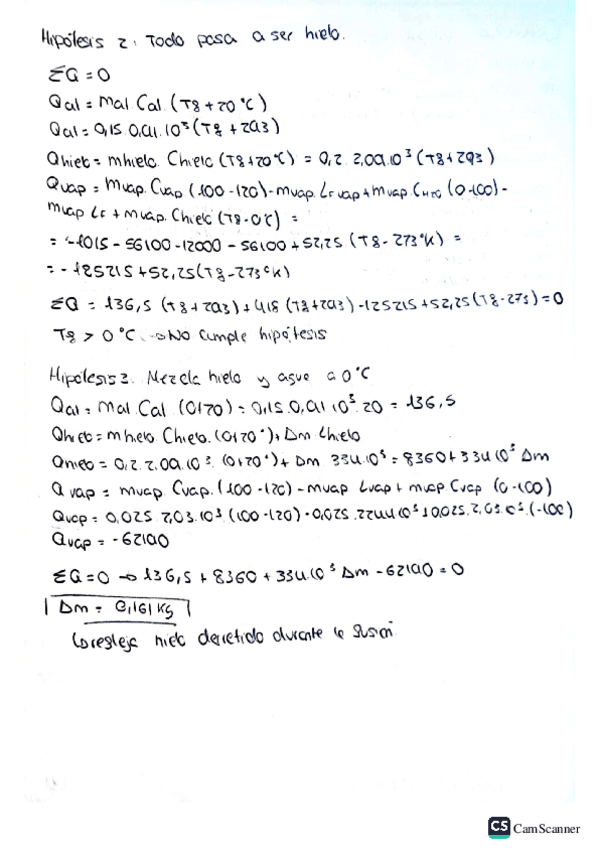 Hipótesis 2: Todo pasa a ser hielo.
ΣQ = 0
Qal = mal Cal. (Tf + 20 °C)
Qal = 0,15. 0,91. 10³ (Tf + 293)
Qhiet = mhielo. Chielo (Tf+20°C) = 0,2. 2,09.10³ (Tf+293)
Qvap = mvap. Cvap (100-120) - mvap. Lf vap + mvap CH2O (0-100) -
mvap Lf + mvap. Chielo (Tf - 0°C) =
= -1015 - 56100 - 12000 - 56100 + 52,25 (Tf - 273°K) =
= - 125215 + 52,25 (Tf - 273°K)
ΣQ = 136,5 (Tf + 293) + 418 (Tf + 293) - 125215 + 52,25 (Tf - 273) = 0
Tf > 0°C → No cumple hipótesis
Hipótesis 3. Mezcla hielo y agua a 0°C
Qal = mal Cal (0+20) = 0,15. 0,91 10³. 20 = 136,5
Qhiet = mhielo. Chielo. (0+20°) + Δm Lhielo
Qhielo = 0,2. 2,09. 10³. (0+20°) + Δm 334.10³ = 8360 + 334 10³ Δm
Qvap = mvap. Cvap. (100-120) - mvap Lvap + mvap Cvap (0-100)
Qvap = 0,025. 2,03. 10³ (100-120) - 0,025. 2244 10³ + 0,025. 2,03. 10³. (-100)
Qvap = - 62190
ΣQ=0 → 136,5 + 8360 + 334.10³ Δm - 62190 = 0
Δm = 0,161 Kg
hielo derretido durante la fusión
CS CamScanner